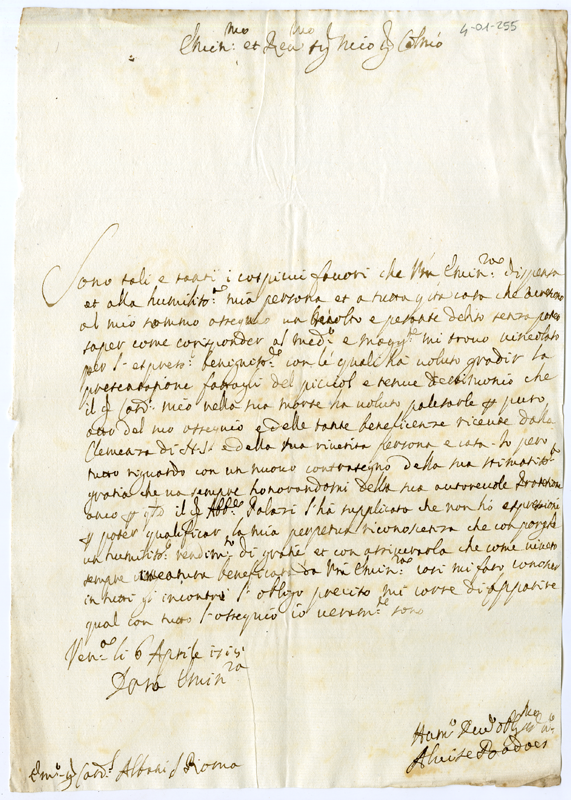 4-01-255
Emin.mo et Rev.mo Sig.
Sono tali e tanti i cospicui favori che V.ra Emin.za dispensa
et alla humiliss.a mia persona et a tutta q.sta casa che
al mio sommo ossequio un e pesante debito senza poter
saper come corrisponder al med.o e magg.te mi trovo vincolato
per l'espress.e benigniss.e con le quali ha voluto gradir la
presentazione fattagli del picciol e tenue testimonio che
il Card. mio nella sua morte ha voluto palesarle p puro
atto del suo ossequio e delle tante beneficenze ricevute dalla
Clemenza di N. S. e della sua riverita persona e casa. Io però
tutto riguardo con un nuovo contrasegno della sua stimatiss.a
gratia che va sempre honorandomi della sua autorevole Protettione
anco p q.to il Abb.e Palazi l'ha supplicata che non hò espressione
p poter qualificar la mia perpetua riconoscenza che con porgerle
un humiliss.o rendim.to di gratie et con assicurarla che come vivero
sempre creatura beneficata da V.ra Emin.za così mi farò conoscer
in tutti gl'incontri l'obligo preciso mi corre di apparire
qual con tutto l'ossequio io veram.te sono
Ven.a li 6 Aprile 1715
Di V.ra Emin.za
Hum.o Dev.o Obl.mo
Aluise
Em.o Sig. Card. Albani Roma